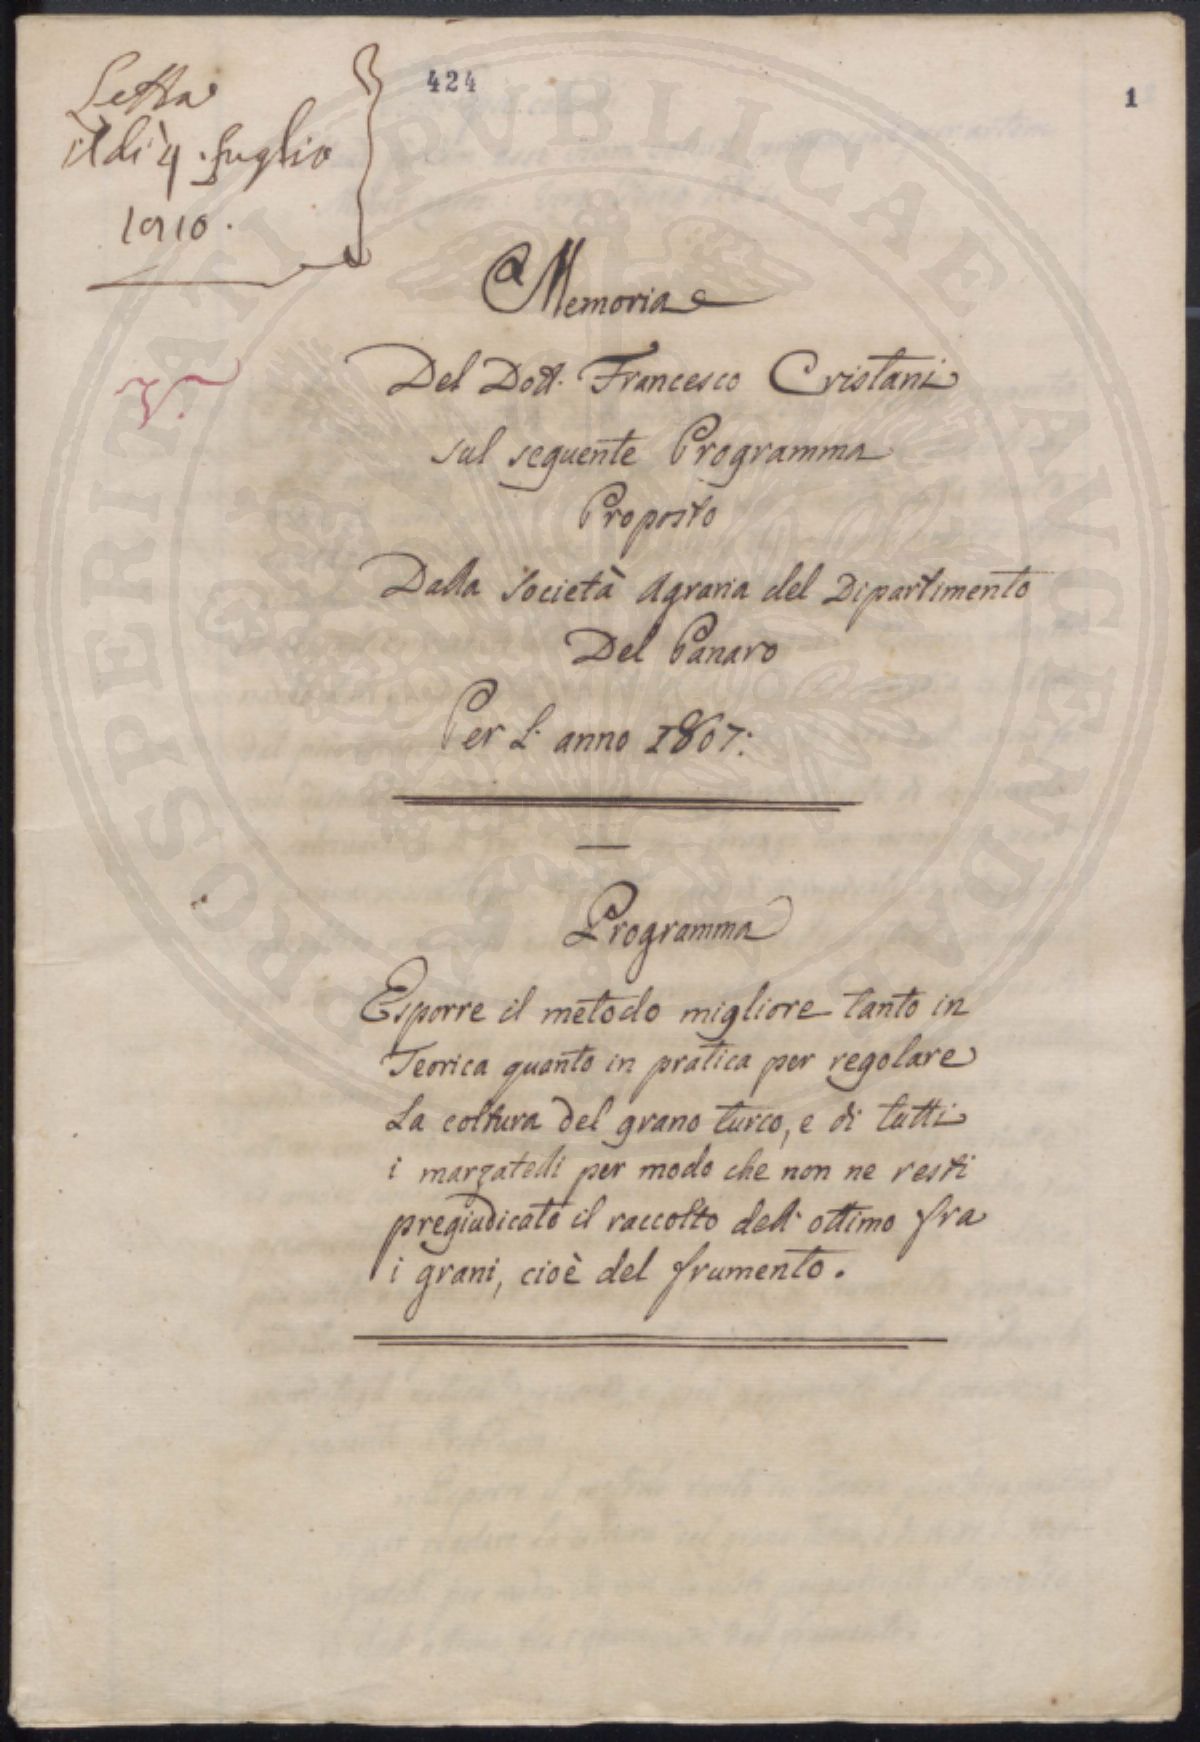 424
1
Letta
il dì 4. Luglio
1910.
Memoria
Del Dott. Francesco Cristani
sul seguente Programma
Proposto
Dalla Società Agraria del Dipartimento
Del Panaro
Per L' anno 1807:
V.
Programma
Esporre il metodo migliore tanto in
Teorica quanto in pratica per regolare
La coltura del grano turco, e di tutti
i marzatelli per modo che non ne resti
pregiudicato il raccolto dell' ottimo fra
i grani, cioè del frumento.
PROSPERITATI PVBLICAE AVGENDAE